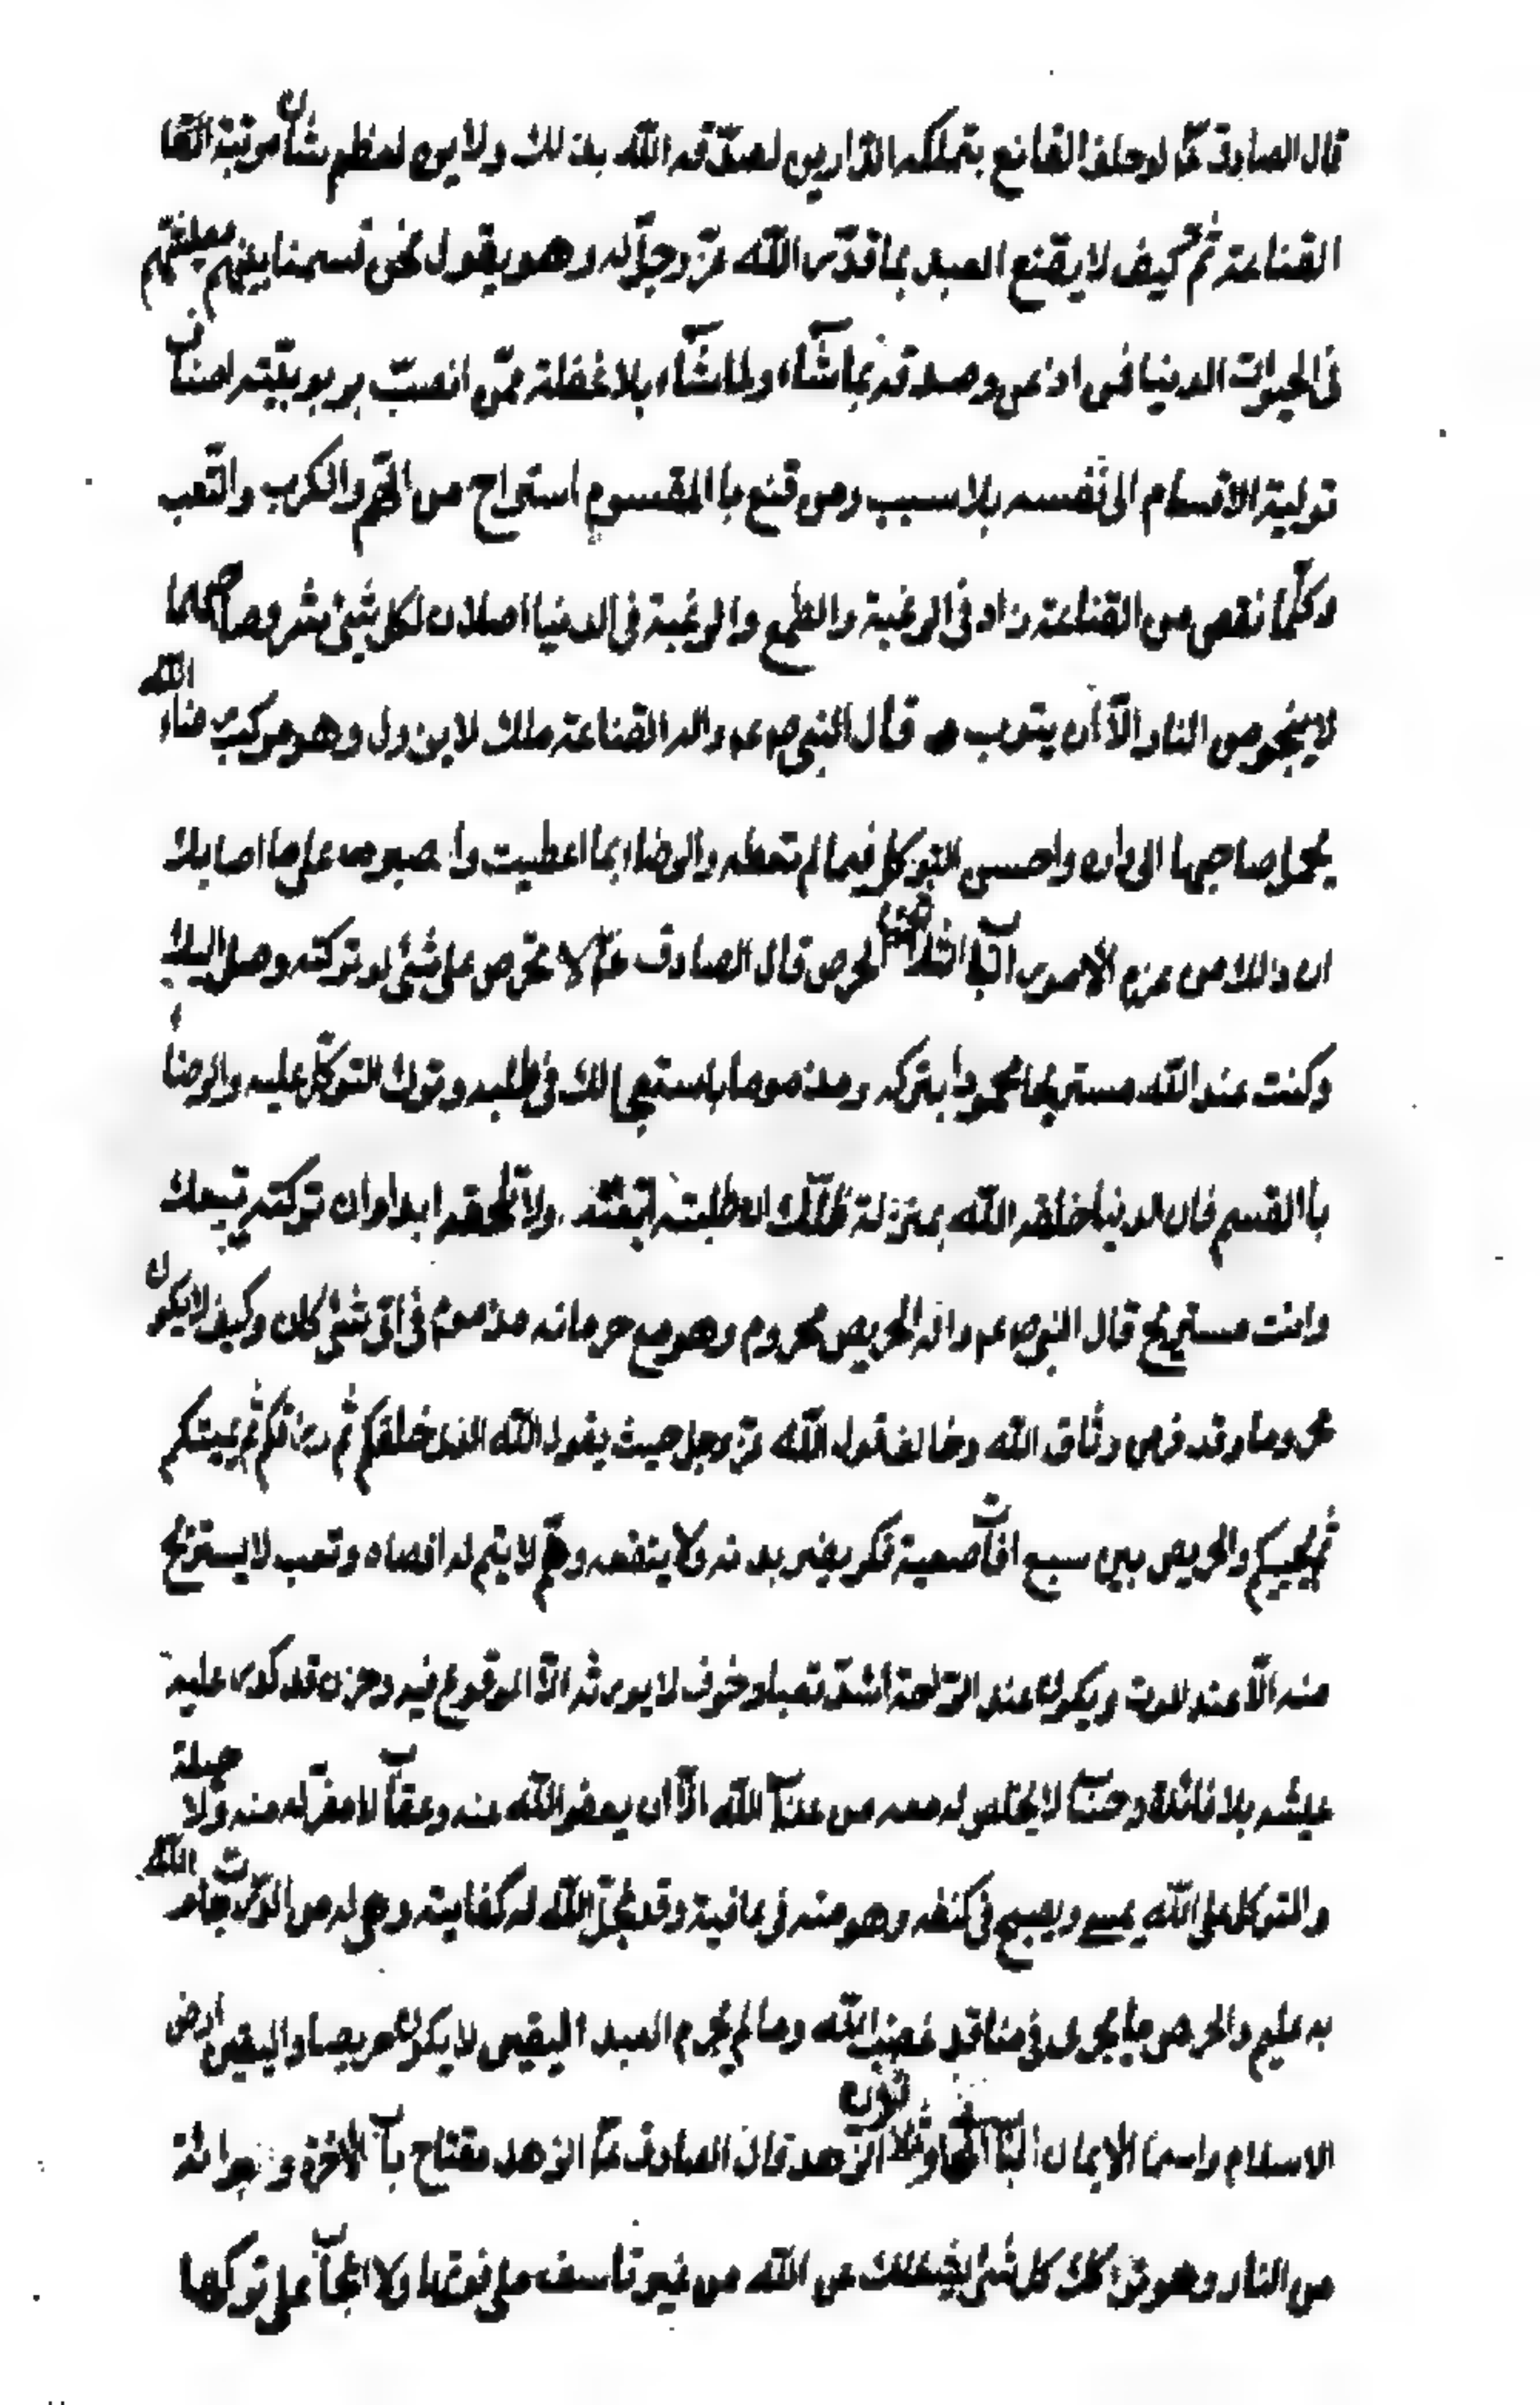 قال الصادق ع لو حلف القانع بتملكه الدارين لصدّقه الله بذلك ولا يرى لعظم شأن مرتبة القا
القناعة ثمّ كيف لا يقنع العبد بما قدّر الله عزّ وجلّ له وهو يقول نحن قسمنا بينهم معيشتهم
فى الحيوات الدنيا فمن اذعن وصدقه بما شآء ولما شآء بلا غفلة ممّن بربوبيّته
تولية الاقسام الى نفسه بلا سبب ومن قنع باالمقسوم استراح من الهّم والكرب والتّعب
وكلّما نقص من القناعة زاد فى الرغبة والطمع والرغبة فى الدنيا اصلان لكل شىء شر وصاحبهما
لا ينجو من النار الّا ان يتوب قال النبى ص ع واله القناعة ملك لا يزول وهو مركب رضاء الله
يحمل صاحبها الى داره واحسن التوكل فيما لم تعطه والرضاء بما اعطيت واصبر على ما اصابك
ان ذلك من عزم الامور الحرص قال الصادق ع لا تحرص على شئ لو تركته وصل اليك
وكنت عند الله مستريحا محمودا بتركه ومذموما باستعجالك فى طلبه وترك التوكّل عليه والرضا
باالقسم فان الدنيا خلقه الله بمنزلة ظلّك ان طلبته ولا تلحقه ابدا وان تركته تبعك
وانت مستريح قال النبى ص ع واله الحريص محروم وهو مع حرمانه مذموم فى اىّ شئ كان وكيف لا يكون
محروما وقد فر من وثاق الله وخالف قول الله عزّ وجل حيث يقول الله الذى خلقكم ثم رزقكم ثم يميتكم
ثم يحييكم والحريص بين سبع افات صعبة فكر يضر بدنه ولا ينفعه وهّم لا يتم له اقصاه وتعب لا يستريح
منه الّا عند الموت ويكون عند الرّاحة اشدّ تعبا وخوف لا يورثه الّا الوقوع فيه وحزن قد كدر عليه
عيشه بلا فائدة وحساب لا يخلص له معه من عذاب الله الّا ان يعفو الله عنه وعقاب لا مفرّ له منه ولا حيلة
والمتوكل على الله يمسى ويصبح فى كنفه وهو منه فى عافية وقد عجّل الله له كفايته وهى له من الدرجات ما الله
به عليم والحرص ما يجرى فى منافذ غضب الله وما لم يحرم العبد اليقين لا يكون حريصا واليقين ارض
الاسلام وسماء الايمان الزّهد قال الصادق ع الزهد مفتاح باب الآخرة وبرائة
من النار وهو تركك كل شئ يشغلك عن الله من غير تاسف على فوتها ولا اعجاب على تركها